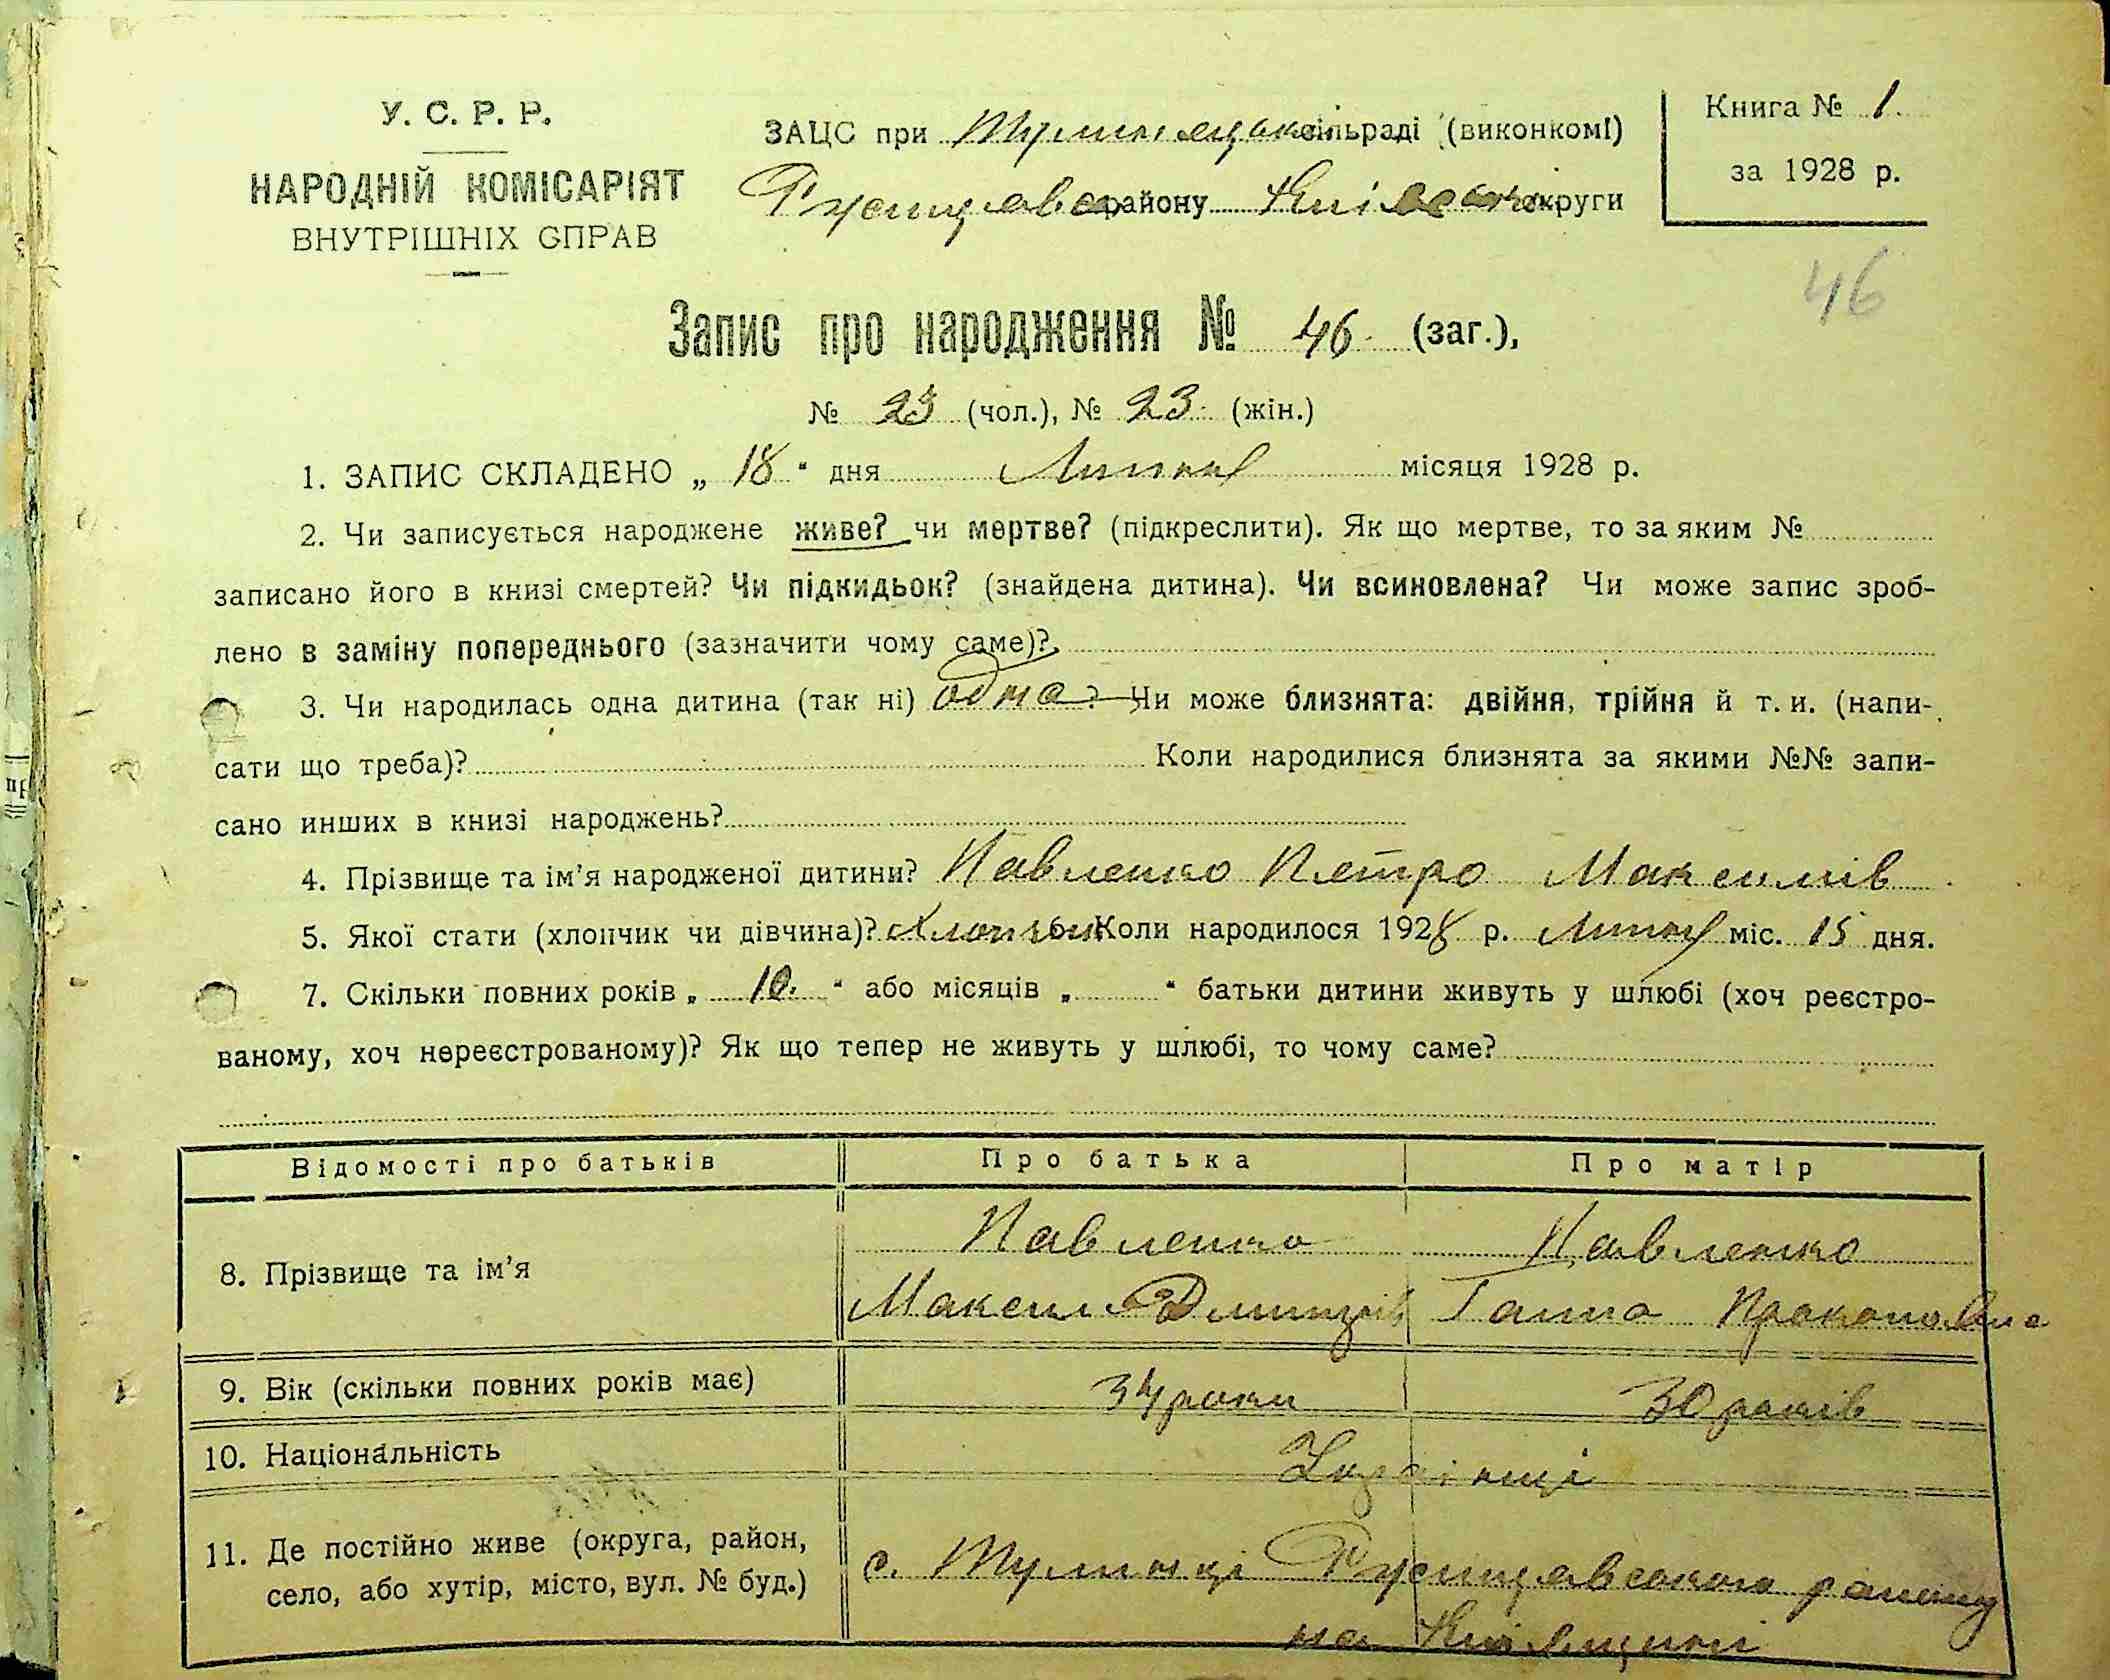 У. С. Р. Р.
НАРОДНІЙ КОМІСАРІЯТ
ВНУТРІШНІХ СПРАВ
ЗАЦС при сільраді (виконкомі)
району Київської округи
Книга № 1
за 1928 р.
46
Запис про народження № 46 (заг.),
№ 23 (чол.), № 23 (жін.)
1. ЗАПИС СКЛАДЕНО „ 18 “ дня Липня місяця 1928 р.
2. Чи записується народжене живе? чи мертве? (підкреслити). Як що мертве, то за яким №
записано його в книзі смертей? Чи підкидьок? (знайдена дитина). Чи всиновлена? Чи може запис зроб-
лено в заміну попереднього (зазначити чому саме)?
3. Чи народилась одна дитина (так ні) одна? Чи може близнята: двійня, трійня й т. и. (напи-
сати що треба)? Коли народилися близнята за якими №№ запи-
сано инших в книзі народжень?
4. Прізвище та ім’я народженої дитини? Павленко Петро Максимів
5. Якої стати (хлопчик чи дівчина)? Хлопчик Коли народилося 1928 р. Липня міс. 15 дня.
7. Скільки повних років „ 10. “ або місяців „ “ батьки дитини живуть у шлюбі (хоч реєстро-
ваному, хоч нереєстрованому)? Як що тепер не живуть у шлюбі, то чому саме?
Відомості про батьків Про батька Про матір
8. Прізвище та ім’я Павленко Павленко
Максим Дмитрів Ганна Прокоповна
9. Вік (скільки повних років має) 34 роки 30 років
10. Національність Українці
11. Де постійно живе (округа, район,
село, або хутір, місто, вул. № буд.)
с. Тулинці району
на Київщині